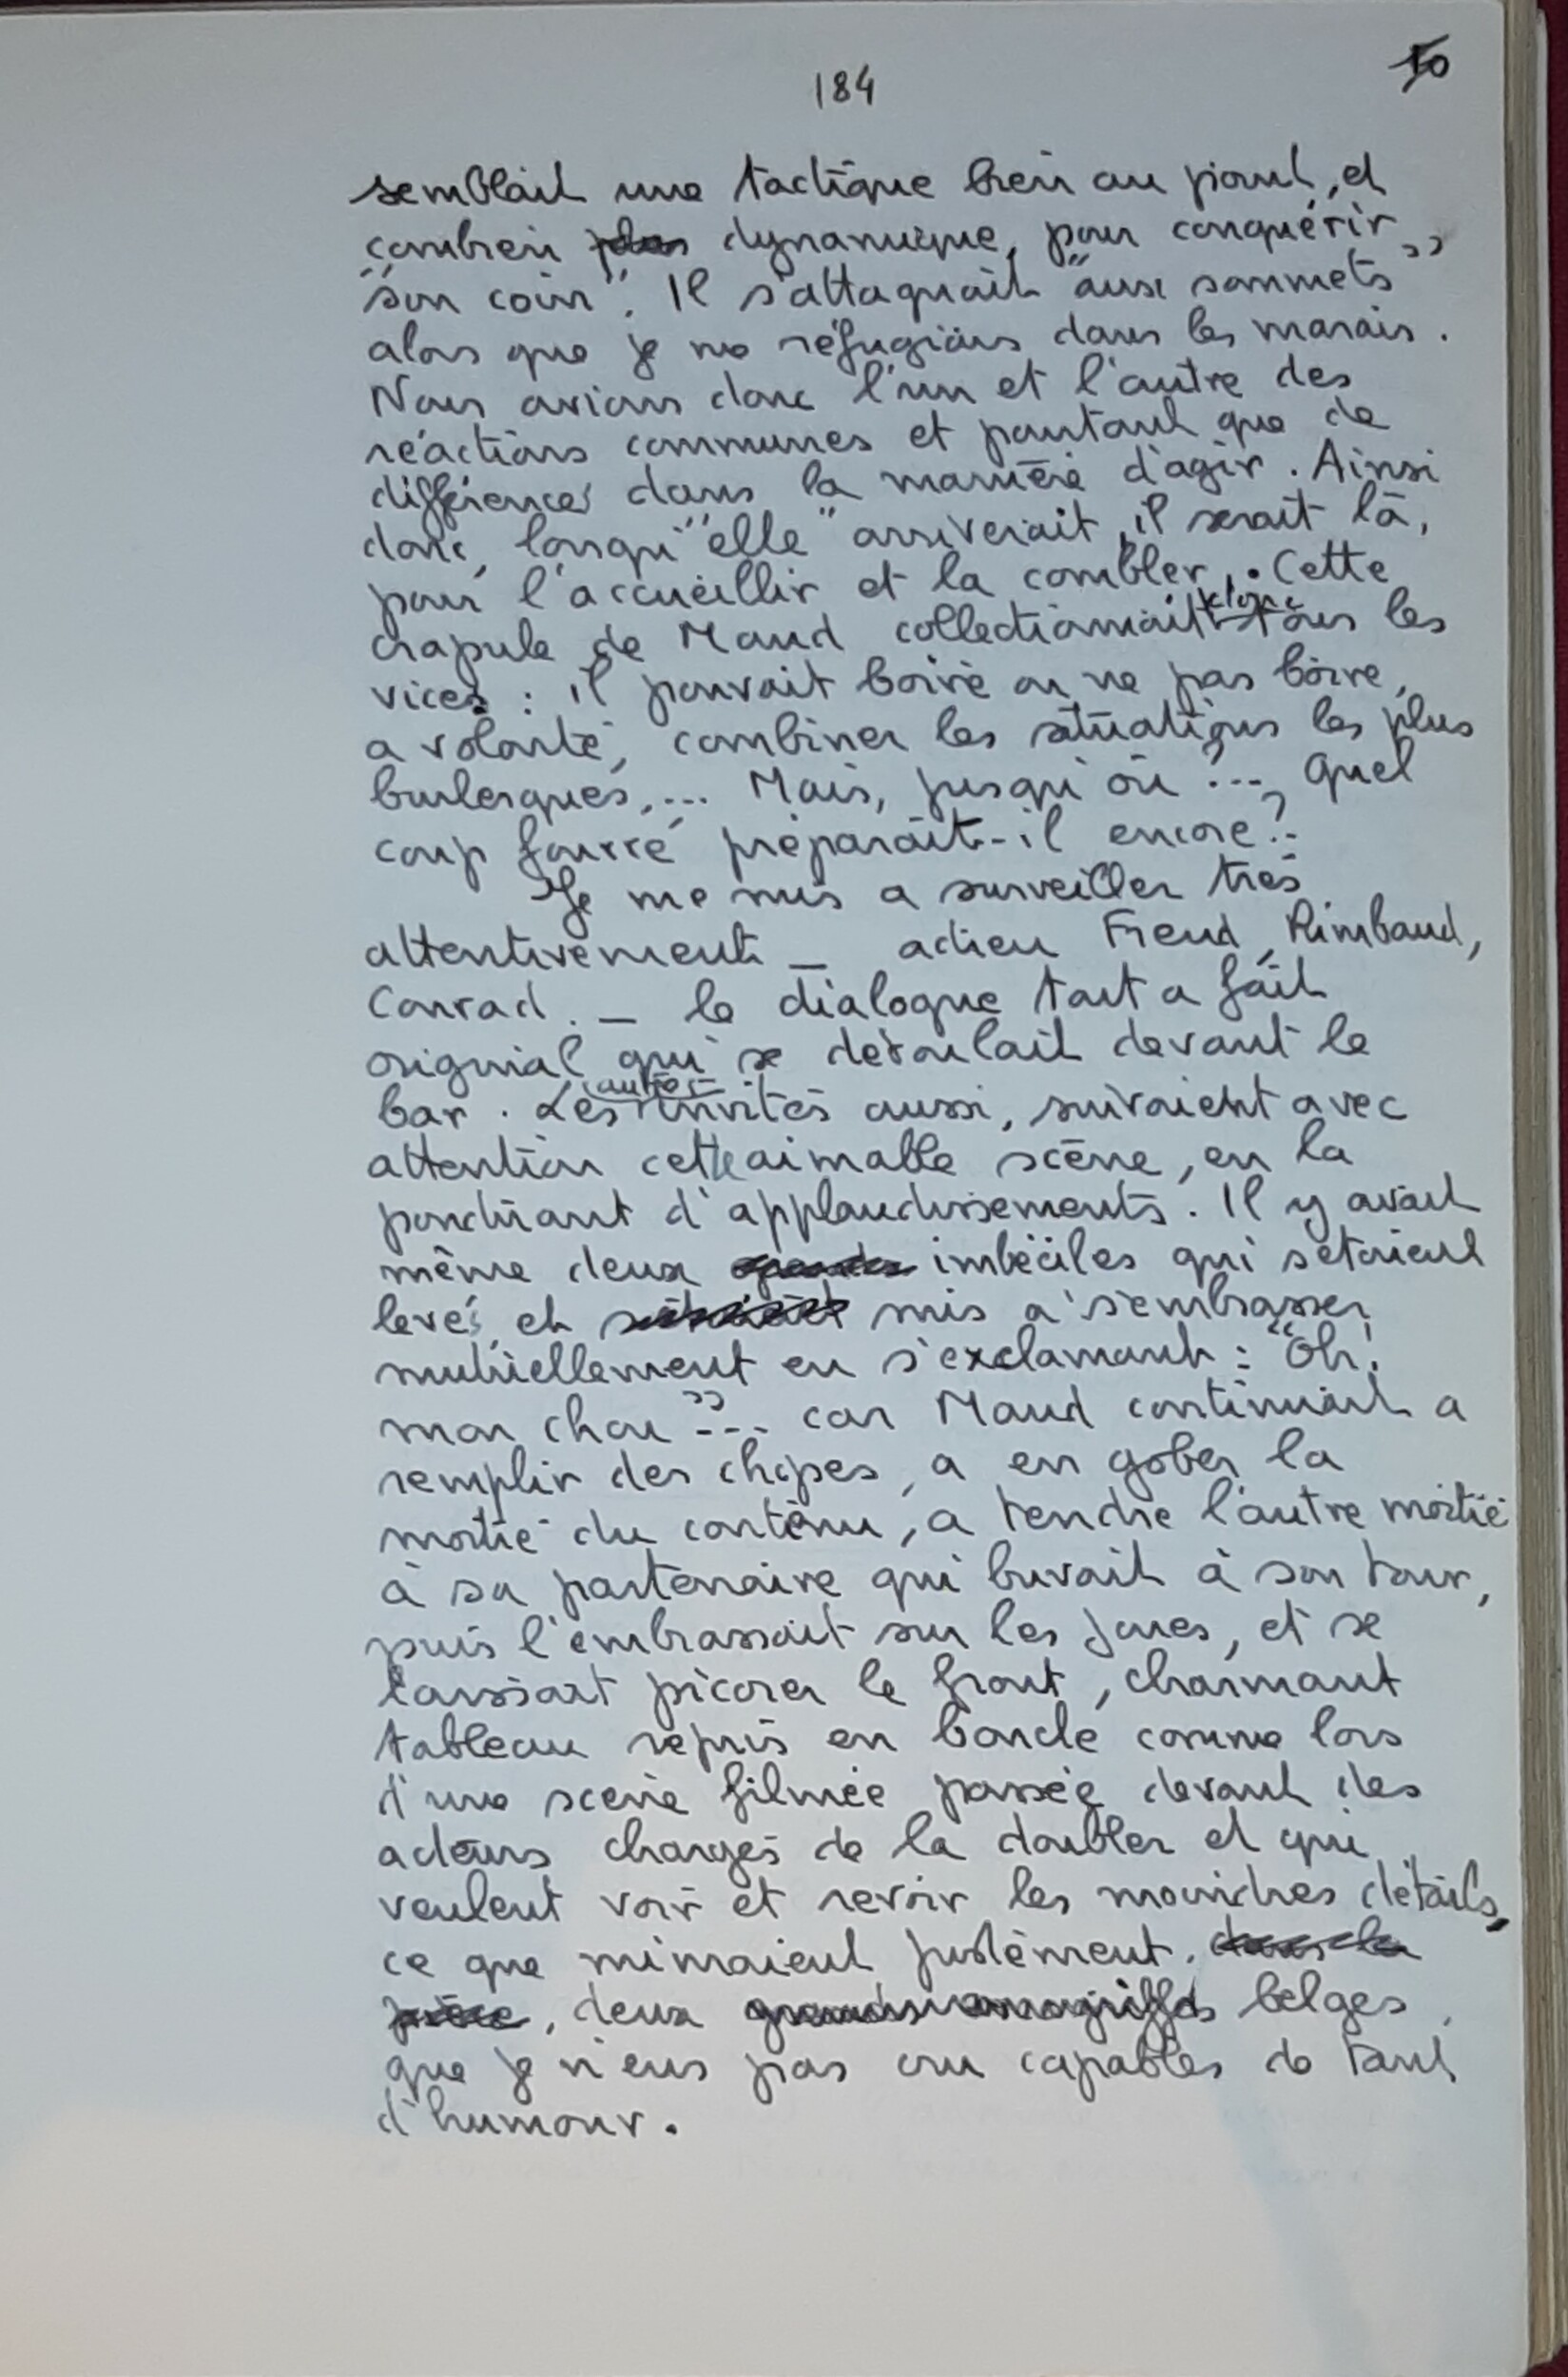 184
10
semblait une tactique bien au point, et
combien plus dynamique, pour conquérir
"son coin". Il s'attaquait "aux sommets"
alors que je me réfugiais dans les marais.
Nous avions donc l'un et l'autre des
réactions communes et pourtant que de
différences dans la manière d'agir. Ainsi
donc, lorsqu'"elle" arriverait, il serait là,
pour l'accueillir et la combler. Cette
donc
crapule de Maud collectionnait tous les
vices : il pouvait boire ou ne pas boire,
a volonté, combiner les situations les plus
burlesques,... Mais, jusqu'où ?... Quel
coup fourré préparait-il encore ?
Je me mis a surveiller très
attentivement _ adieu Freud, Rimbaud,
Conrad. _ le dialogue tout a fait
original qui se déroulait devant le
autres
bar. Les invités aussi, suivaient avec
attention cette aimable scène, en la
ponctuant d'applaudissements. Il y avait
même deux imbéciles qui s'étaient
levés, et mis a s'embrasser
mutuellement en s'exclamant : "Oh!
mon chou"... car Maud continuait a
remplir des chopes, a en gober la
moitié du contenu, a tendre l'autre moitié
à sa partenaire qui buvait à son tour,
puis l'embrassait sur les joues, et se
laissait picorer le front, charmant
tableau repris en boucle comme lors
d'une scène filmée passée devant des
acteurs chargés de la doubler et qui
veulent voir et revoir les moindres détails,
ce que mimaient justement. dans la
pièce, deux grands belges,
que je n'eus pas cru capables de tant
d'humour.